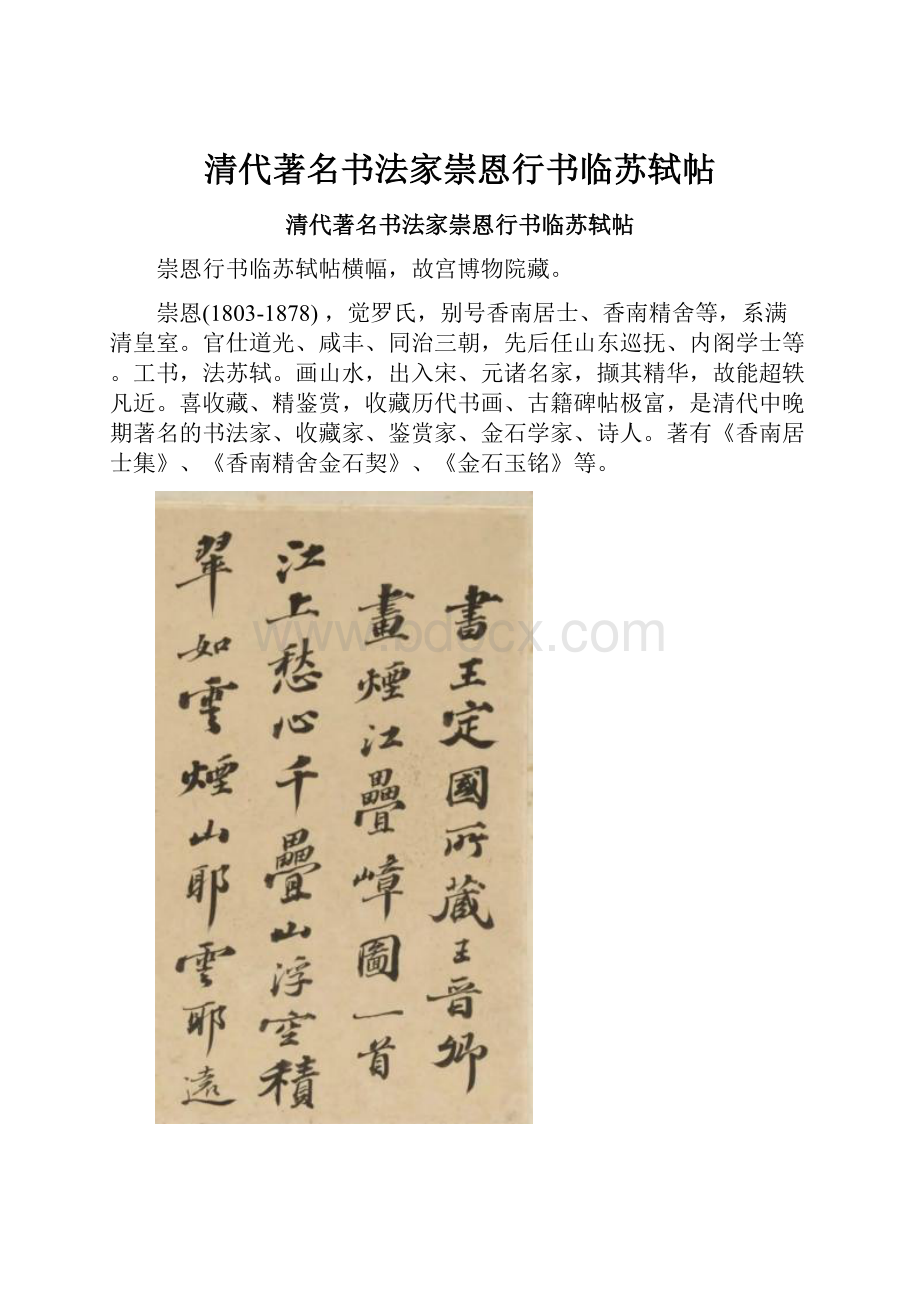 清代著名书法家崇恩行书临苏轼帖
清代著名书法家崇恩行书临苏轼帖
崇恩行书临苏轼帖横幅，故宫博物院藏。
崇恩(1803-1878)，觉罗氏，别号香南居士、香南精舍等，系满
清皇室。官仕道光、咸丰、同治三朝，先后任山东巡抚、内阁学士等
。工书，法苏轼。画山水，出入宋、元诸名家，撷其精华，故能超轶
凡近。喜收藏、精鉴赏，收藏历代书画、古籍碑帖极富，是清代中晚
期著名的书法家、收藏家、鉴赏家、金石学家、诗人。著有《香南居
士集》、《香南精舍金石契》、《金石玉铭》等。
書王定國所藏王晉卿
畫煙江疊嶂圖一首
江上愁心千疊山浮空積
翠如雲煙山耶雲耶遠
www.bdocx.com